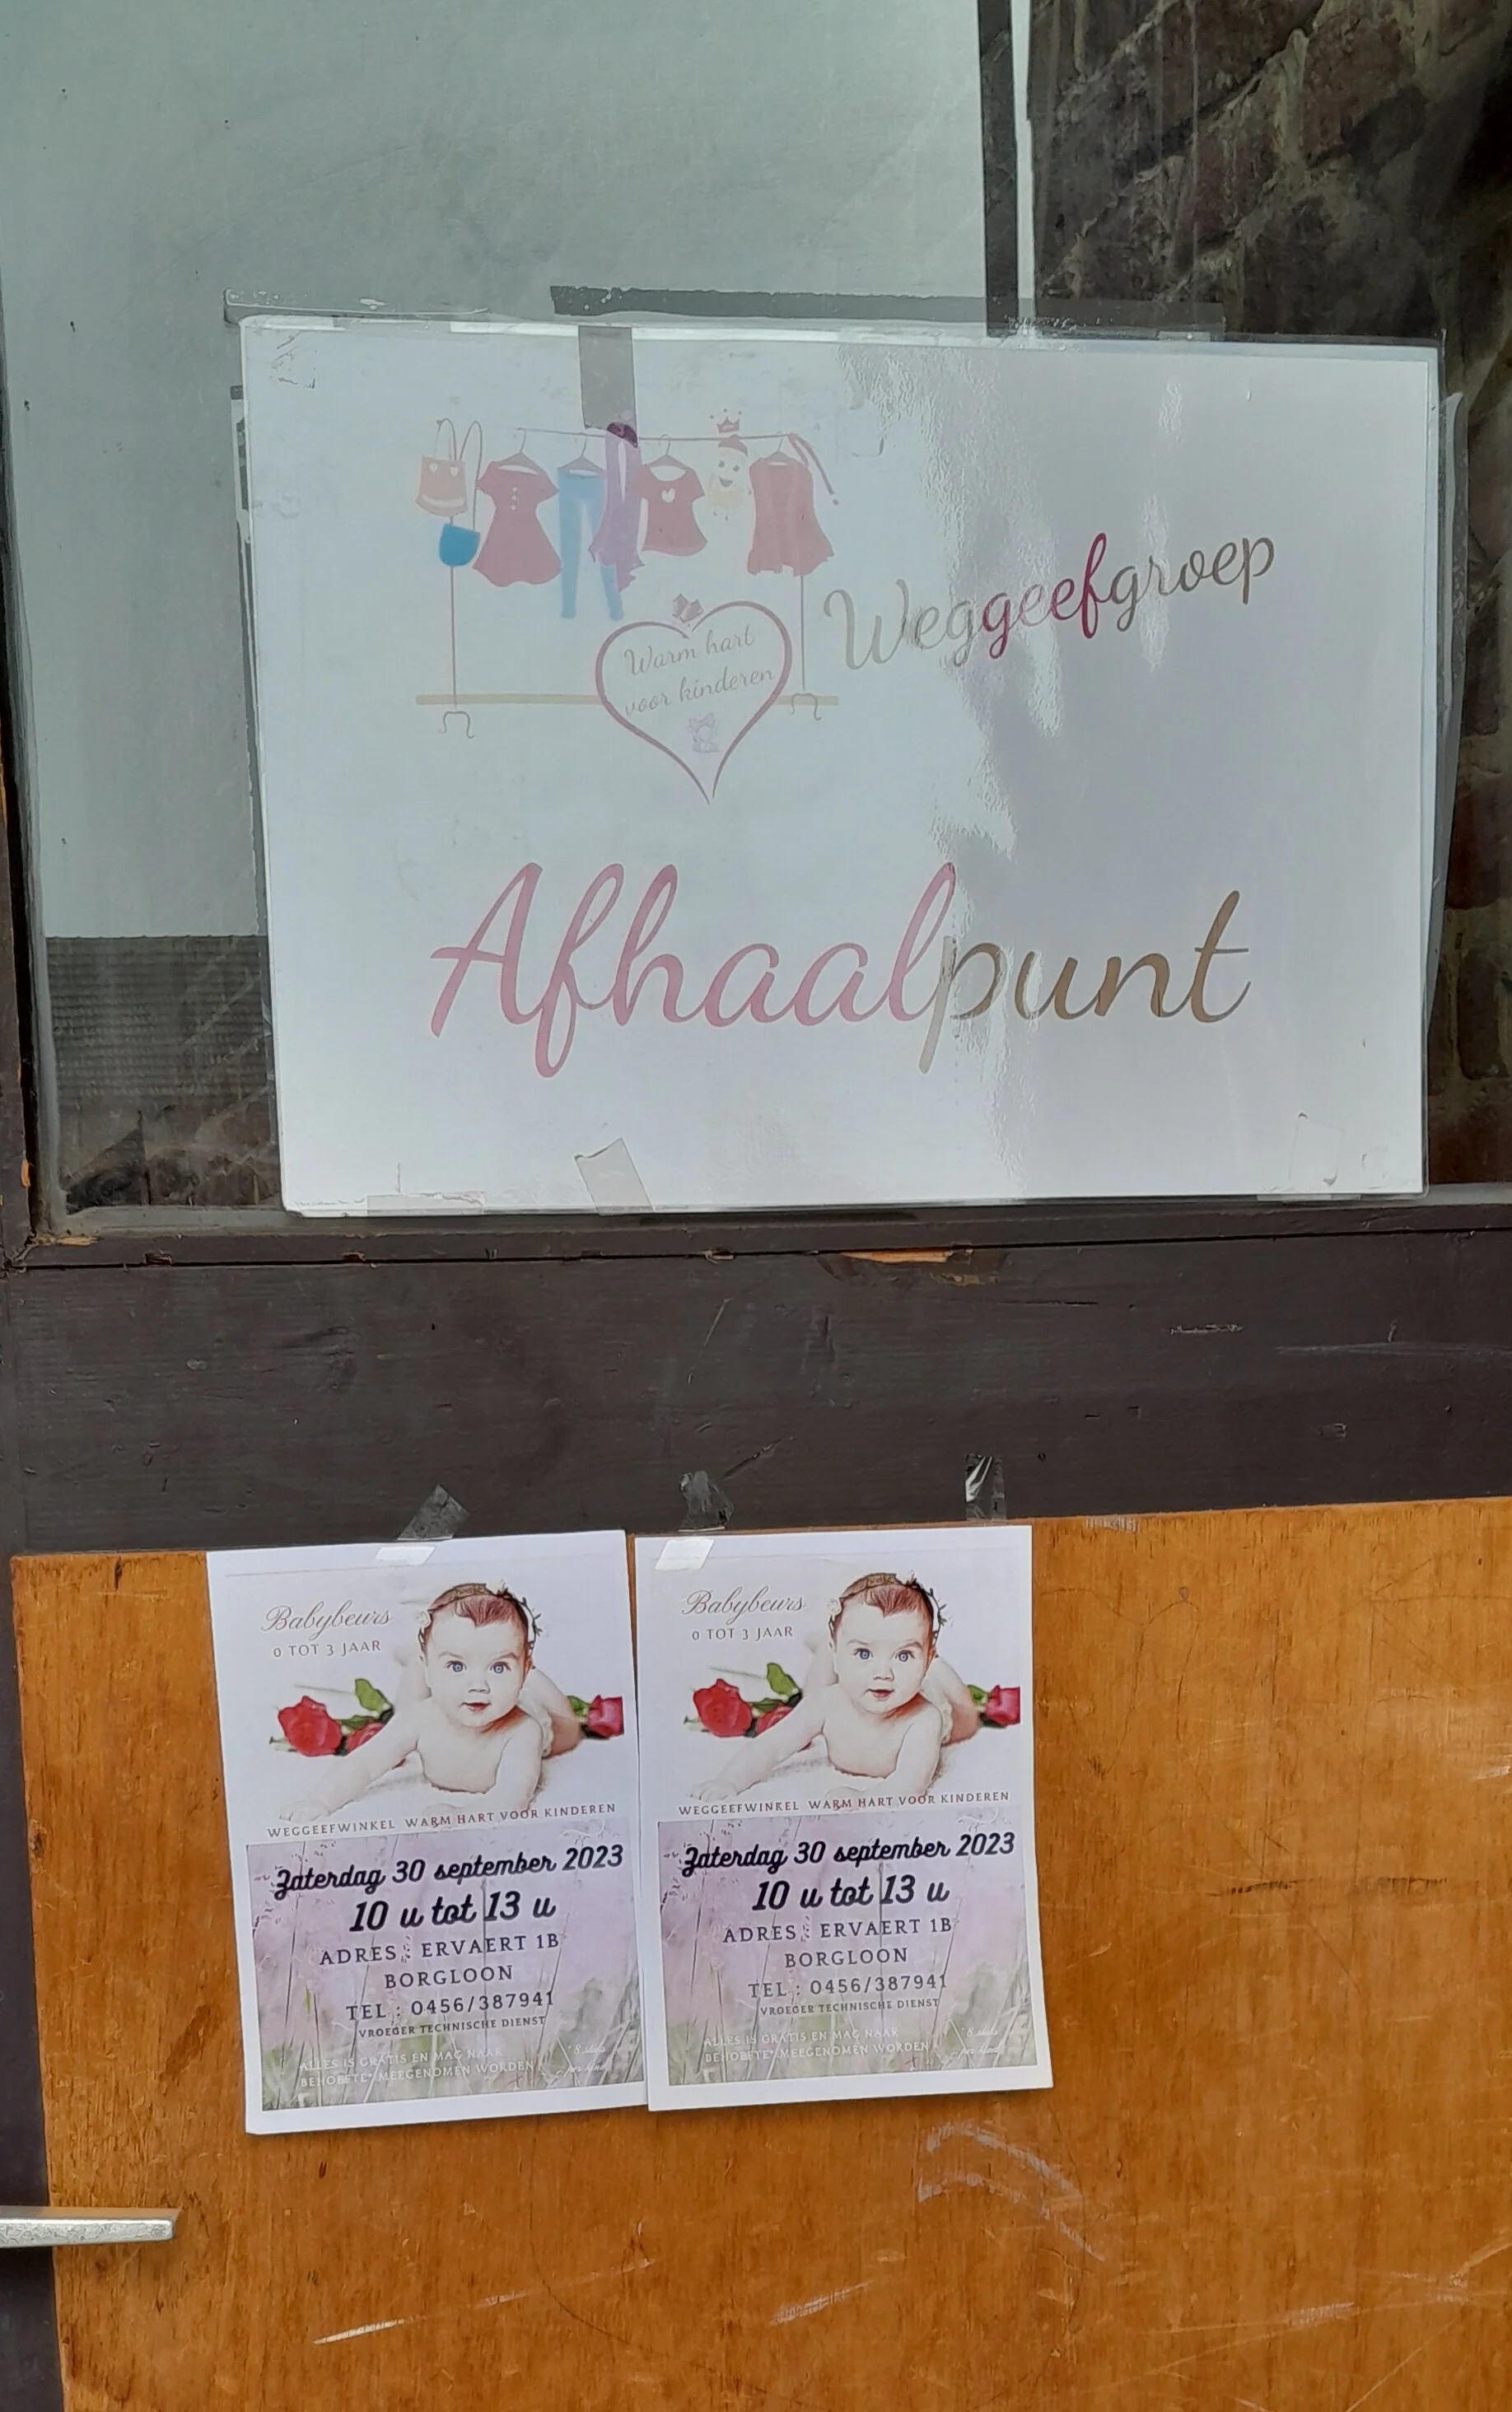 Weggeefgroep
Warm hart
voor kinderen
Afhaalpunt
Babybeurs
0 TOT 3 JAAR
WEGGEEFWINKEL WARM HART VOOR KINDEREN
Zaterdag 30 september 2023
10 u tot 13 u
ADRES : ERVAERT 1B
BORGLOON
TEL : 0456/387941
VROEGER TECHNISCHE DIENST
ALLES IS GRATIS EN MAG NAAR
BEHOEFTE* MEEGENOMEN WORDEN
Babybeurs
0 TOT 3 JAAR
WEGGEEFWINKEL WARM HART VOOR KINDEREN
Zaterdag 30 september 2023
10 u tot 13 u
ADRES : ERVAERT 1B
BORGLOON
TEL : 0456/387941
VROEGER TECHNISCHE DIENST
ALLES IS GRATIS EN MAG NAAR
BEHOEFTE* MEEGENOMEN WORDEN